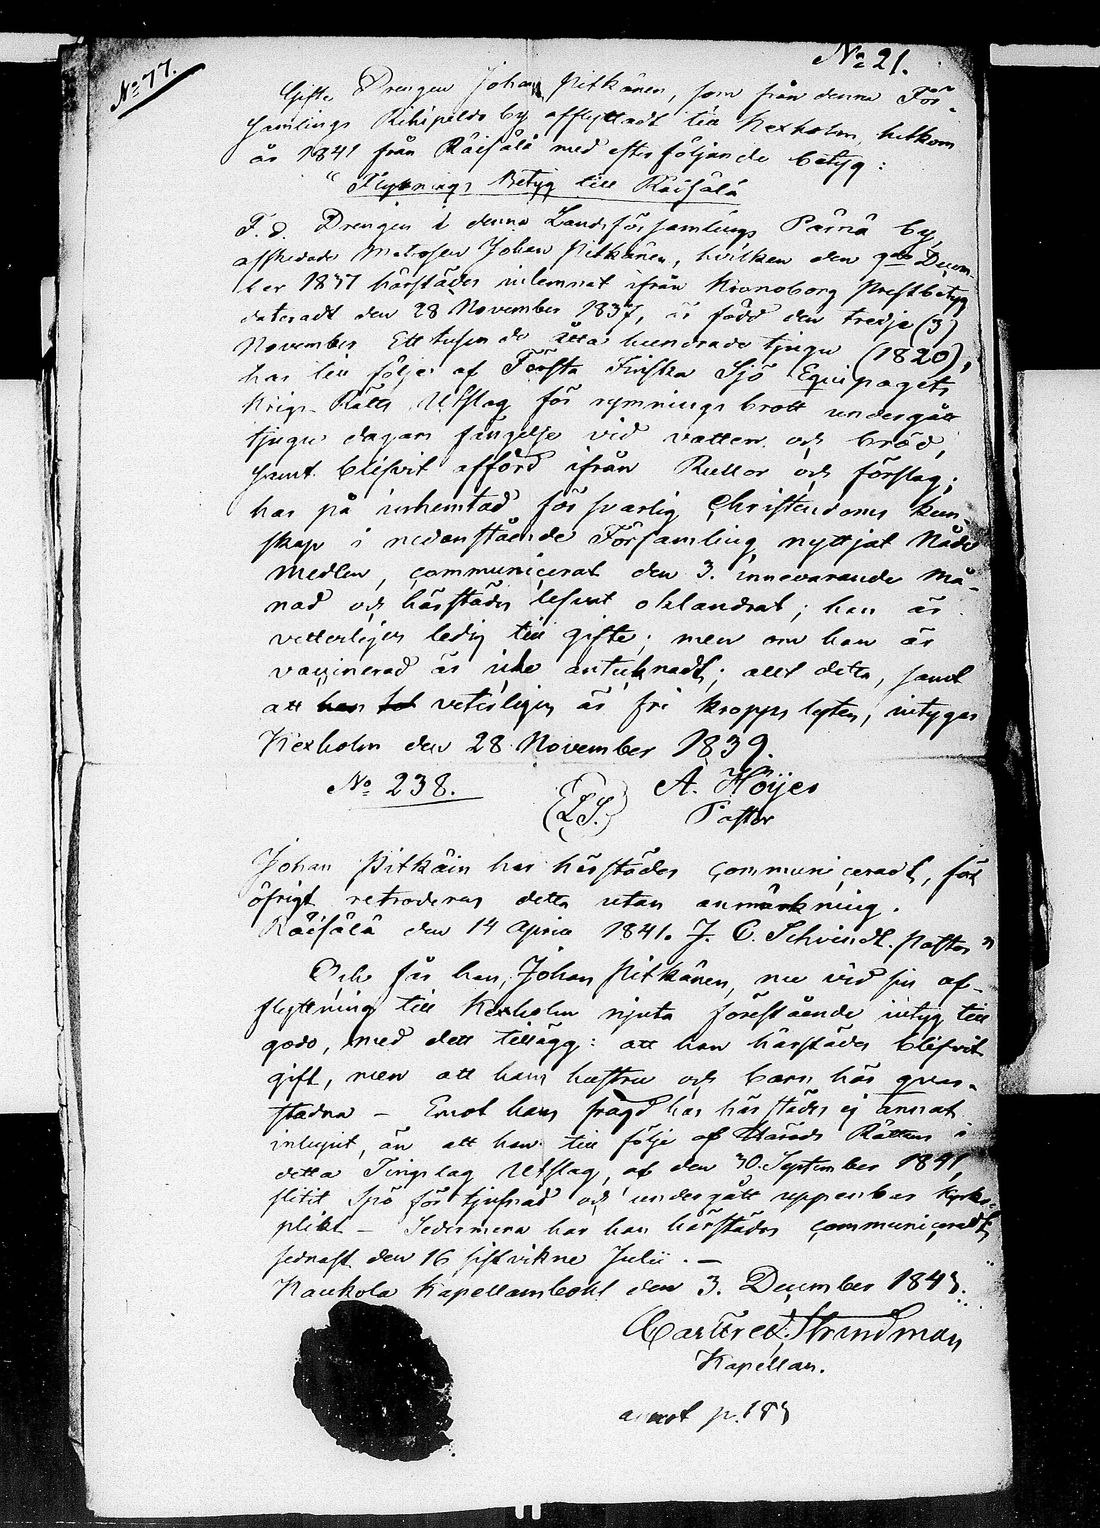 No 77.
No 21.
Gifte Drengen Johan Pitkänen, som från denna För-
samlings Rihipeldo by afflyttadt till Kexholm, hitkom
år 1841 från Räisälä med efterföljande betyg:
"Flyttnings Betyg till Räisälä
F. d. Drengen i denna Landsförsamlings Pärnä by,
afskedade Matrosen Johan Pitkänen, hvilken den Decem-
ber 1837 härstädes inlemnat ifrån Kronoborg Prestbetyg
dateradt den 28 November 1837, är född den tredje (3)
November Ett tusende åtta hundrade tjugu (1820),
har till följe af Första Finska Sjö Equipagets
Krigs-Rätts Utslag för rymnings brott undergått
tjugu dagars fängelse vid vatten och bröd,
samt blifvit afförd ifrån Rullor och förslag;
har på inhemtad försvarlig Christendoms kun-
skap i nedanstående Församling nyttjat Nåde
medlen, communicerat den 3. innevarande må-
nad och härstädes lefvat oklandrat; han är
vetterligen ledig till gifte; men om han är
vaccinerad är icke antecknadt; allt detta, samt
att han vetterligen är fri kropps lyten, intygas
Kexholm den 28 November 1839.
No 238.
(L.S.)
A. Höijer
Pastor
Johan Pitkäin har härstädes communiceradt, för
öfrigt retroderas detta utan anmärkning.
Räisälä den 14 April 1841. J. C. Schvindt. Pastor"
Och får han, Johan Pitkänen, nu vid sin af-
flyttning till Kexholm njuta förestående intyg till
godo, med dett tillägg: att han härstädes blifvit
gift, men att hans hustru och barn här qvar-
stadna – Emot hans frägd har härstädes ej annat
inlupit, än att han till följe af Härads Rättens i
detta Tingslag Utslag, af den 30. September 1841,
slitit Spö för tjufnad och undergått uppenbar kyrko-
plikt – Sedermera har han härstädes communiceradt
sednast den 16 sistvikne Julii. –
Kaukola Kapellansbohl den 3. December 1843.
Carl Strandman
Kapellan.
p. 183